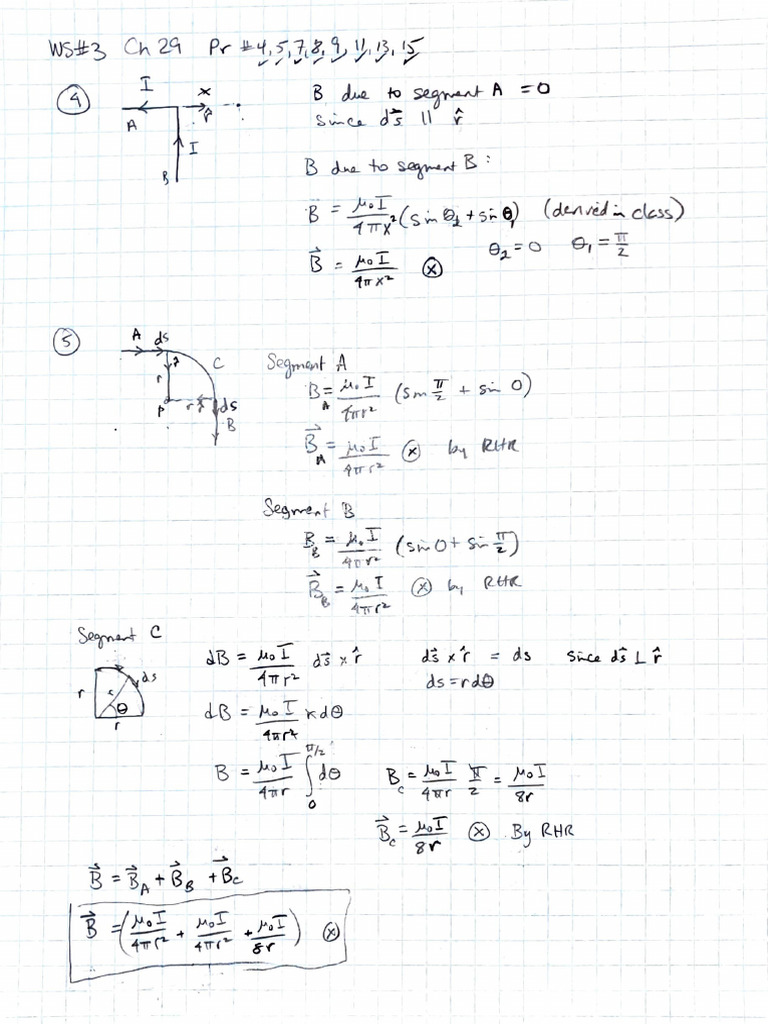 WS#3 Ch 29 Pr #4,5,7,8,9,11,13,15
④ I x r̂ A I B
B due to segment A = 0
since ds⃗ ∥ r̂
B due to segment B:
B = μ₀I/4πx² (sin θ₂ + sin θ₁) (derived in class)
θ₂ = 0 θ₁ = π/2
B⃗ = μ₀I/4πx² ⊗
⑤ A ds r̂ C r P r r̂ ds B
Segment A
B_A = μ₀I/4πr² (sin π/2 + sin 0)
B⃗_A = μ₀I/4πr² ⊗ by RHR
Segment B
B_B = μ₀I/4πr² (sin 0 + sin π/2)
B⃗_B = μ₀I/4πr² ⊗ by RHR
Segment C
r c ds θ r
dB = μ₀I/4πr² ds⃗ × r̂ ds⃗ × r̂ = ds since ds⃗ ⊥ r̂
ds = rdθ
dB = μ₀I/4πr² r dθ
B = μ₀I/4πr ∫₀^(π/2) dθ B_C = μ₀I/4πr π/2 = μ₀I/8r
B⃗_C = μ₀I/8r ⊗ By RHR
B⃗ = B⃗_A + B⃗_B + B⃗_C
B⃗ = (μ₀I/4πr² + μ₀I/4πr² + μ₀I/8r) ⊗